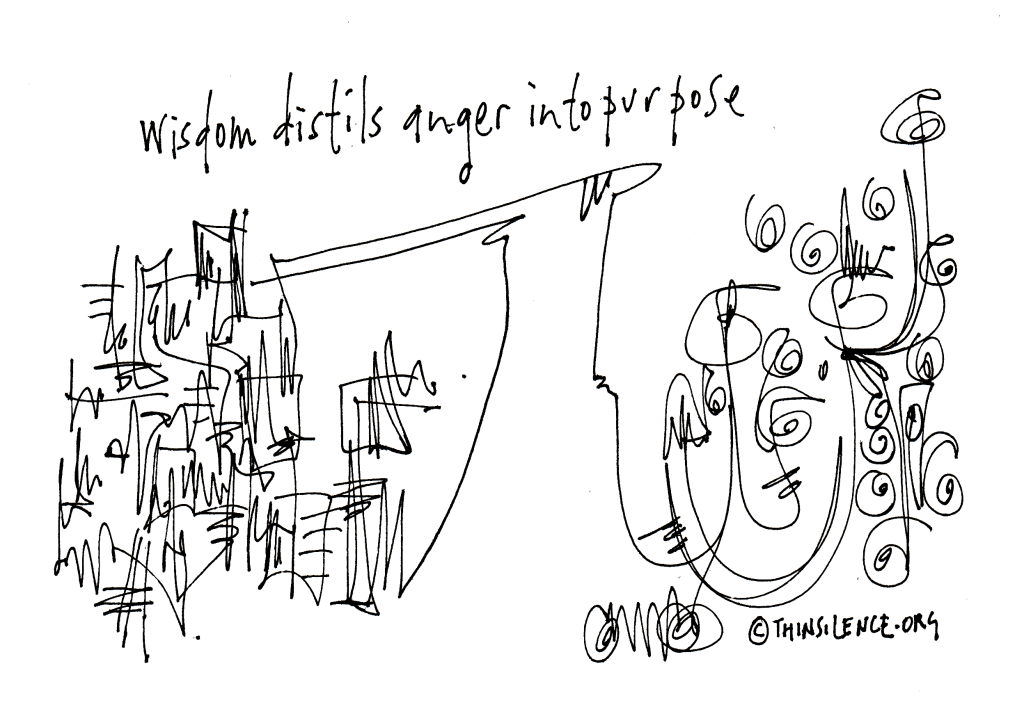 wisdom distils anger into purpose
© THINSILENCE.ORG